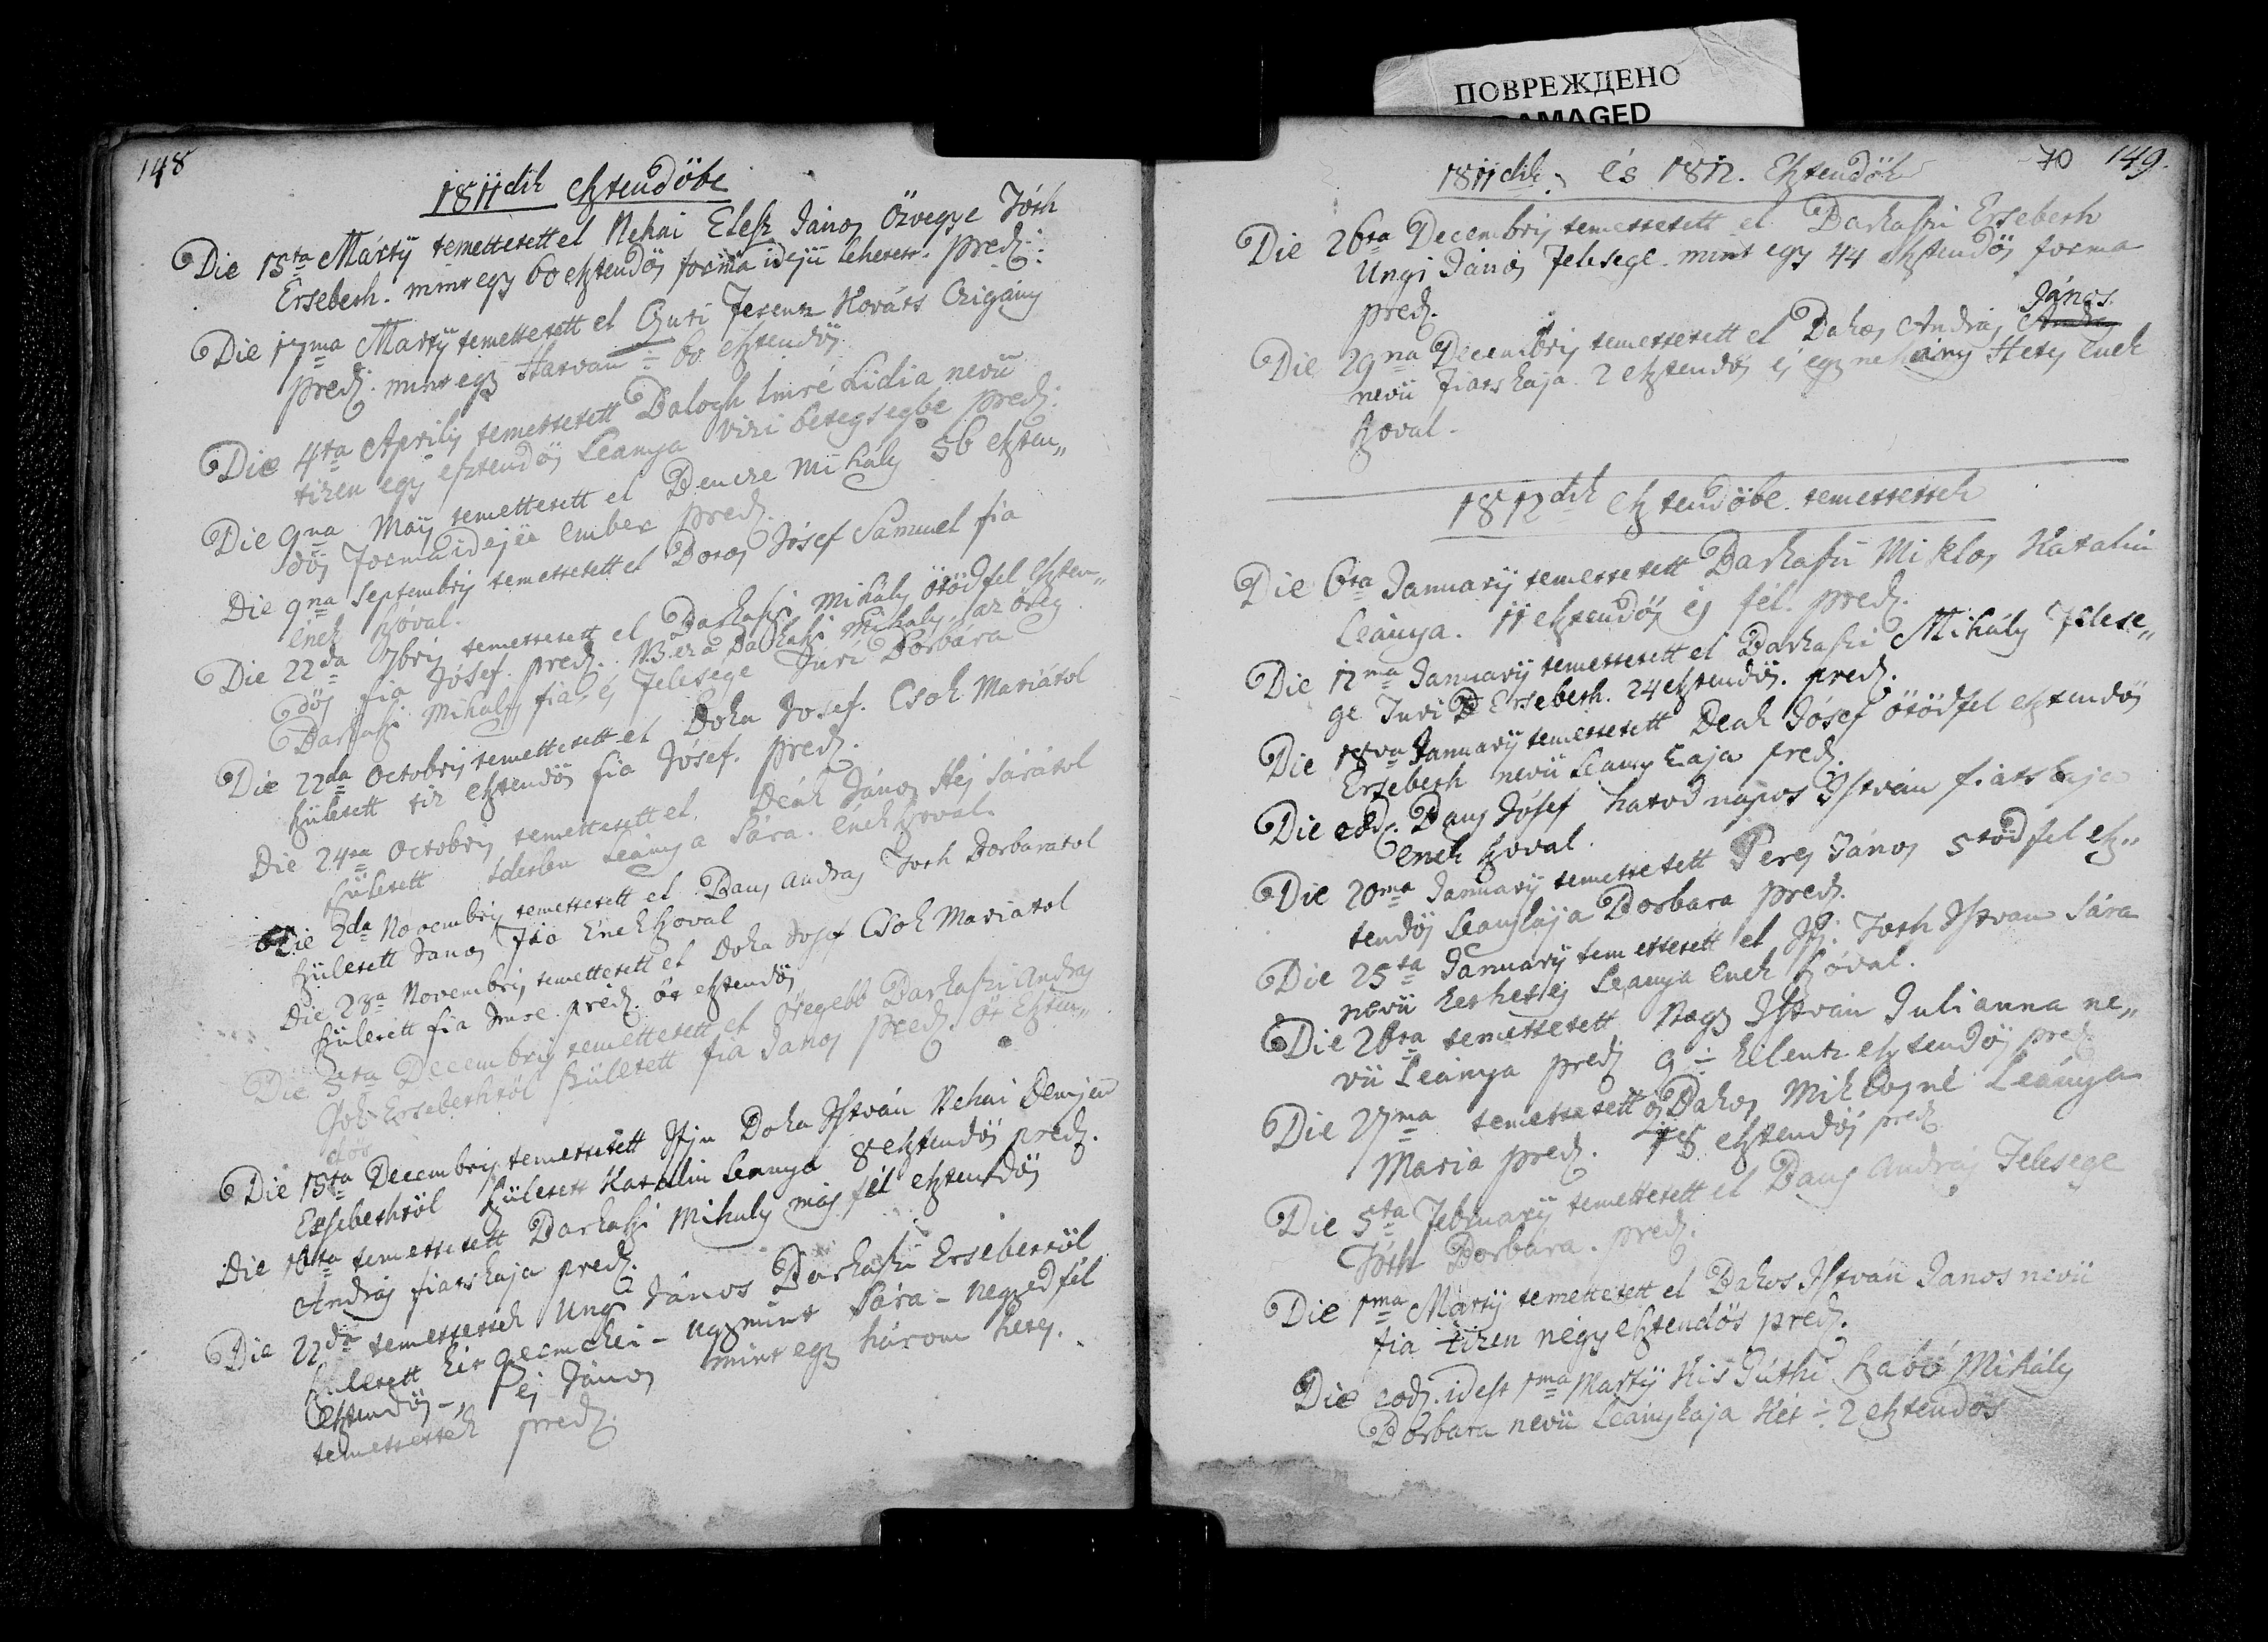 148
1811dik esztendőbe
Die 15ta Martÿ temettetett el Nehai Elesz János özvegye Tóth
Ersebeth. mint egy 60 esztendős forma idejü lehetett. præd:
Die 17ma Martÿ temettetett el Guti Ferentz Kováts Czigány
præd: mint egy Hatvan 60 esztendős
Die 4ta Aprilis temettetett Balogh Imré Lidia nevü
tizen egy esztendős Leánya vizi betegsegbe præd:
Die 9na Maÿ temettetett el Dencze Mihály 56 eszten„
dős forma idejü ember præd.
Die 9na Septembris temettetett el Boros Jósef Sámuel fia
ének szóval.
Die 22da 7bris temettetett el Barkaszi Mihály ötödfel eszten„
dős fia Jósef. præd. NB ez a Barkaszi Mihaly, az öreg
Barkaszi Mihaly fia, és Felesége Turi Borbára
Die 22da Octobris temettetett el Boka Josef. Csok Mariátol
született tiz esztendős fia Jósef. præd.
Die 24ta Octobris temettetett el. Deák János Héj Sárátol
született idetlen Leánya Sára. ének szoval.
Die 2da Novembris temettetett el Bans András Toth Borbaratol
született Janos Fia Enekszoval
Die 23a Novembris temettetett el Boka Josef Csok Mariatol
született fia Imre præd. öt esztendős
Die 5ta Decembris temettetett el öregebb Barkaszi András
Ersebethtöl született fia Janos præd. öt Eszten„
dős
Die 15ta Decembris temettetett Ifju Boka István Nehai Demjen
Ersebethtöl született Katalin leanya 8 esztendős præd.
Die 16ta temettetett Barkaszi Mihály más fél esztendős
András fiatskaja præd.
Die 22da temettettek Ungi János Barkaszi Ersebettöl
született két gyermekei - ugymint Sára - negyedfél
esztendős -, és János mint egy három hetes.
temettettek præd.
1811dik és 1812. Esztendök
70 149.
Die 26ta Decembris temettetett el Barkaszi Ersebeth
Ungi János Felesege mint egy 44 esztendős forma
præd.
János
Die 29na Decembris temettetett el Bakos András Andras
nevü fiatskaja. 2 esztendős és egy nehány Hetes Enek
szoval.
1812dik esztendöbe temettettek
Die 6ta Januarÿ temettetett Barkaszi Miklos Katalin
Leánya. 11 esztendős és fél. præd.
Die 12ma Januarÿ temettetett el Barkaszi Mihály Felese„
ge Turi Ersebeth. 24 esztendős. præd.
Die 18va Januarÿ temettetett Deak Jósef ötödfel esztendős
Ersebeth nevü Leanykaja præd.
Die eod. Bans Jósef hatod napos István fiatskaja
enek szoval.
Die 20ma Januarÿ temettetett Peres János 5tödfel esz„
tendős Leanykaja Borbara præd.
Die 25ta Januarÿ temettetett el Ifj. Toth István Sára
nevü hethetes Leanya enek szóval.
Die 26ta temettetett Nagy István Julianna ne„
vü Leánya præd 9 kilentz esztendős præd
Die 27ma temettetett Bakos Miklosné Leánya
Maria præd. 18 esztendős præd.
Die 5ta Februarÿ temettetett el Bans András Felesege
Tóth Borbára. præd.
Die 1ma Martÿ temettetett el Bakos István Janos nevü
fia tizen négy esztendős præd.
Die eod. idest 1ma Martÿ Kis Szabó Mihály
Borbara nevü Leánykaja Két 2 esztendős
ПОВРЕЖДЕНО
DAMAGED